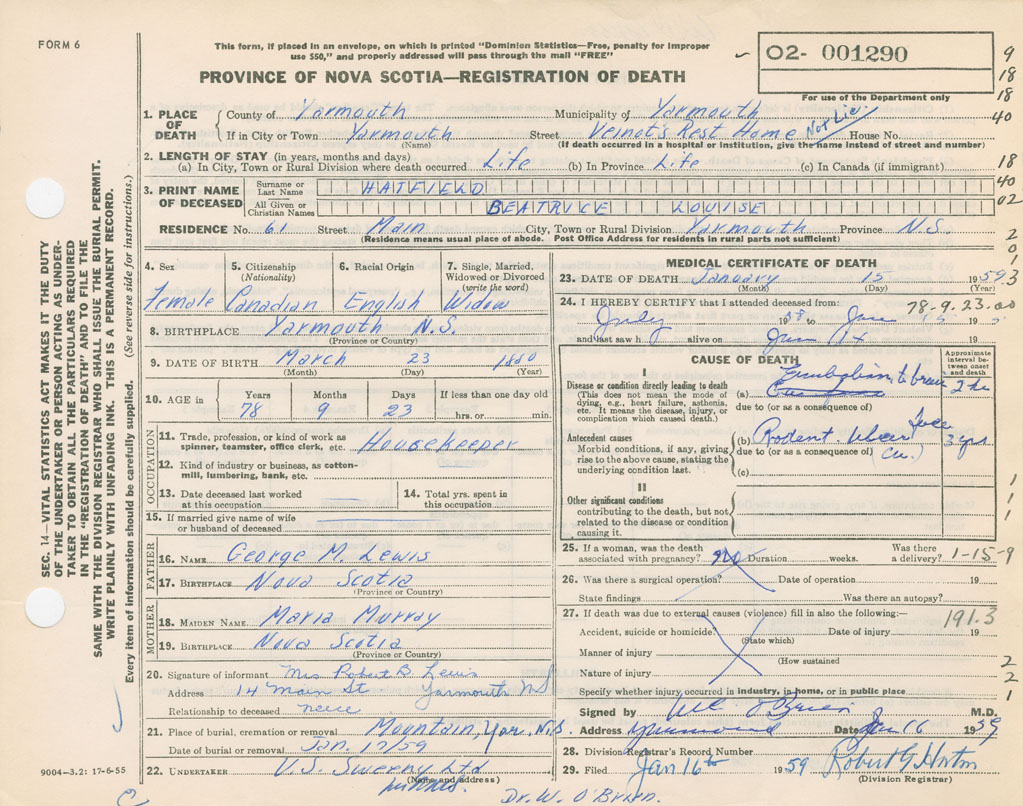 FORM 6
This form, if placed in an envelope, on which is printed "Dominion Statistics—Free, penalty for improper
use $50," and properly addressed will pass through the mail "FREE"
02- 001290
For use of the Department only
PROVINCE OF NOVA SCOTIA—REGISTRATION OF DEATH
9
18
18
40
18
40
02
2
0
1
3
1
1
1
2
2
1
SEC. 14—VITAL STATISTICS ACT MAKES IT THE DUTY
OF THE UNDERTAKER OR PERSON ACTING AS UNDER-
TAKER TO OBTAIN ALL THE PARTICULARS REQUIRED
IN THE "REGISTRATION OF DEATH" AND TO FILE THE
SAME WITH THE DIVISION REGISTRAR WHO SHALL ISSUE THE BURIAL PERMIT.
WRITE PLAINLY WITH UNFADING INK. THIS IS A PERMANENT RECORD.
Every item of information should be carefully supplied. (See reverse side for instructions.)
1. PLACE OF DEATH
County of Yarmouth Municipality of Yarmouth
If in City or Town Yarmouth Street Veinot's Rest Home Not Lic. House No.
(Name) (If death occurred in a hospital or institution, give the name instead of street and number)
2. LENGTH OF STAY (in years, months and days)
(a) In City, Town or Rural Division where death occurred Life (b) In Province Life (c) In Canada (if immigrant)
3. PRINT NAME OF DECEASED
Surname or Last Name HATFIELD
All Given or Christian Names BEATRICE LOUISE
RESIDENCE No. 61 Street Main City, Town or Rural Division Yarmouth Province N.S.
(Residence means usual place of abode. Post Office Address for residents in rural parts not sufficient)
4. Sex 5. Citizenship (Nationality) 6. Racial Origin 7. Single, Married, Widowed or Divorced (write the word)
Female Canadian English Widow
8. BIRTHPLACE Yarmouth N.S.
(Province or Country)
9. DATE OF BIRTH March 23 1880
(Month) (Day) (Year)
10. AGE in Years Months Days If less than one day old
78 9 23 hrs. or min.
OCCUPATION
11. Trade, profession, or kind of work as
spinner, teamster, office clerk, etc. Housekeeper
12. Kind of industry or business, as cotton-
mill, lumbering, bank, etc.
13. Date deceased last worked
at this occupation
14. Total yrs. spent in
this occupation
15. If married give name of wife
or husband of deceased
FATHER
16. NAME George M. Lewis
17. BIRTHPLACE Nova Scotia
(Province or Country)
MOTHER
18. MAIDEN NAME Maria Murray
19. BIRTHPLACE Nova Scotia
(Province or Country)
20. Signature of informant Mrs Robert B. Lewis
Address 14 Main St Yarmouth NS
Relationship to deceased neice
21. Place of burial, cremation or removal Mountain, Yar, N.S.
Date of burial or removal Jan. 17/59
22. UNDERTAKER V.S. Sweeny Ltd
(Name and address)
9004—3.2: 17-6-55
MEDICAL CERTIFICATE OF DEATH
23. DATE OF DEATH January 15 1959
(Month) (Day) (Year)
78-9-23.00
24. I HEREBY CERTIFY that I attended deceased from:
July 1958 to Jan 15 19
and last saw h alive on Jan 14 19
CAUSE OF DEATH
Approximate interval between onset and death
I
Disease or condition directly leading to death
(This does not mean the mode of
dying, e.g., heart failure, asthenia,
etc. It means the disease, injury, or
complication which caused death.)
(a) Embolism to brain 2
due to (or as a consequence of)
Antecedent causes
Morbid conditions, if any, giving
rise to the above cause, stating the
underlying condition last.
(b) Rodent Ulcer face (Ca.) 3 yrs.
due to (or as a consequence of)
(c)
II
Other significant conditions
contributing to the death, but not
related to the disease or condition
causing it.
25. If a woman, was the death
associated with pregnancy? no Duration weeks. Was there a delivery? 1-15-9
26. Was there a surgical operation? Date of operation 19
State findings Was there an autopsy?
27. If death was due to external causes (violence) fill in also the following:—
191.3
Accident, suicide or homicide Date of injury 19
(State which)
Manner of injury
(How sustained
Nature of injury
Specify whether injury occurred in industry, in home, or in public place
Signed by W.C. O'Brien M.D.
Address Yarmouth Date Jan 16 1959
28. Division Registrar's Record Number
29. Filed Jan 16th 1959 Robert G Horton
(Division Registrar)
Dr. W. O'Brien.